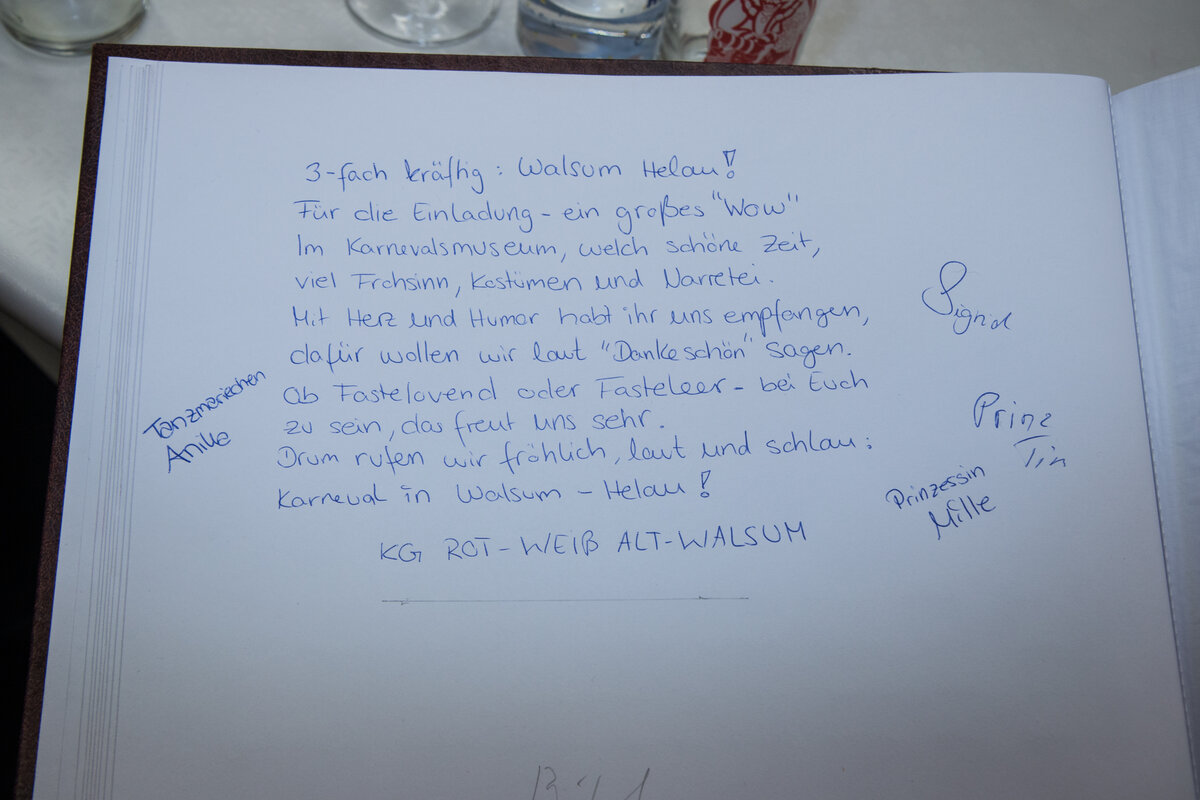 3-fach kräftig: Walsum Helau!
Für die Einladung - ein großes "Wow"
Im Karnevalsmuseum, welch schöne Zeit,
viel Frohsinn, Kostümen und Narretei.
Mit Herz und Humor habt ihr uns empfangen,
dafür wollen wir laut "Dankeschön" sagen.
Ob Fastelovend oder Fasteleer - bei Euch
zu sein, das freut uns sehr.
Drum rufen wir fröhlich, laut und schlau:
Karneval in Walsum - Helau!
KG ROT-WEIß ALT-WALSUM
Tanzmariechen
Anike
Prinz
Tin
Prinzessin
Mille